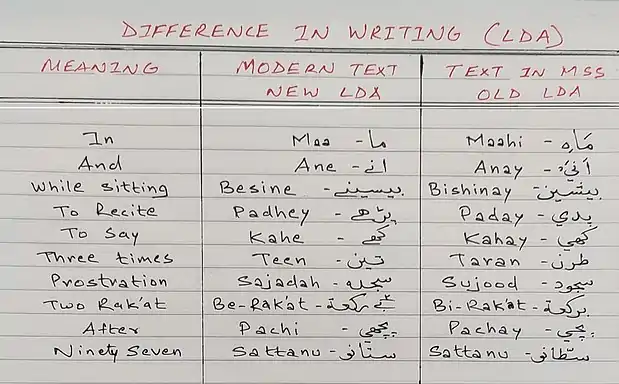 DIFFERENCE IN WRITING (LDA)
MEANING MODERN TEXT TEXT IN MSS
NEW LDA OLD LDA
In Maa - ما Maahi - مَاهِ
And Ane - انے Anay -
While sitting Besine - بيسينے Bishinay - بيشين
To Recite Padhey - پڑھے Paday - پدي
To Say Kahe - كهے Kahay - كهي
Three times Teen - تين Taran - طرن
Prostration Sajadah - سجده Sujood - سجود
Two Rak'at Be-Rak'at - بے ركعة Bi-Rak'at - بركعة
After Pachi - پچهي Pachay - پچي
Ninety Seven Sattanu - ستانو Sattanu - سّطانو